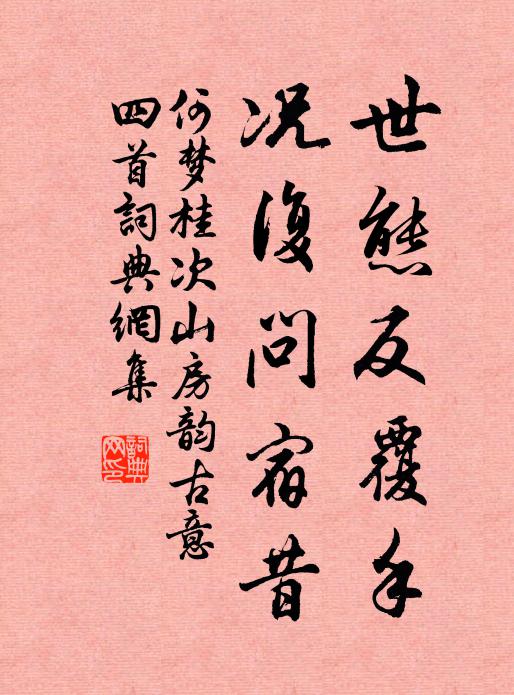 世態反覆手
况復問宿昔
何梦桂次山房韵古意
四首詞典網集
詞典
网印